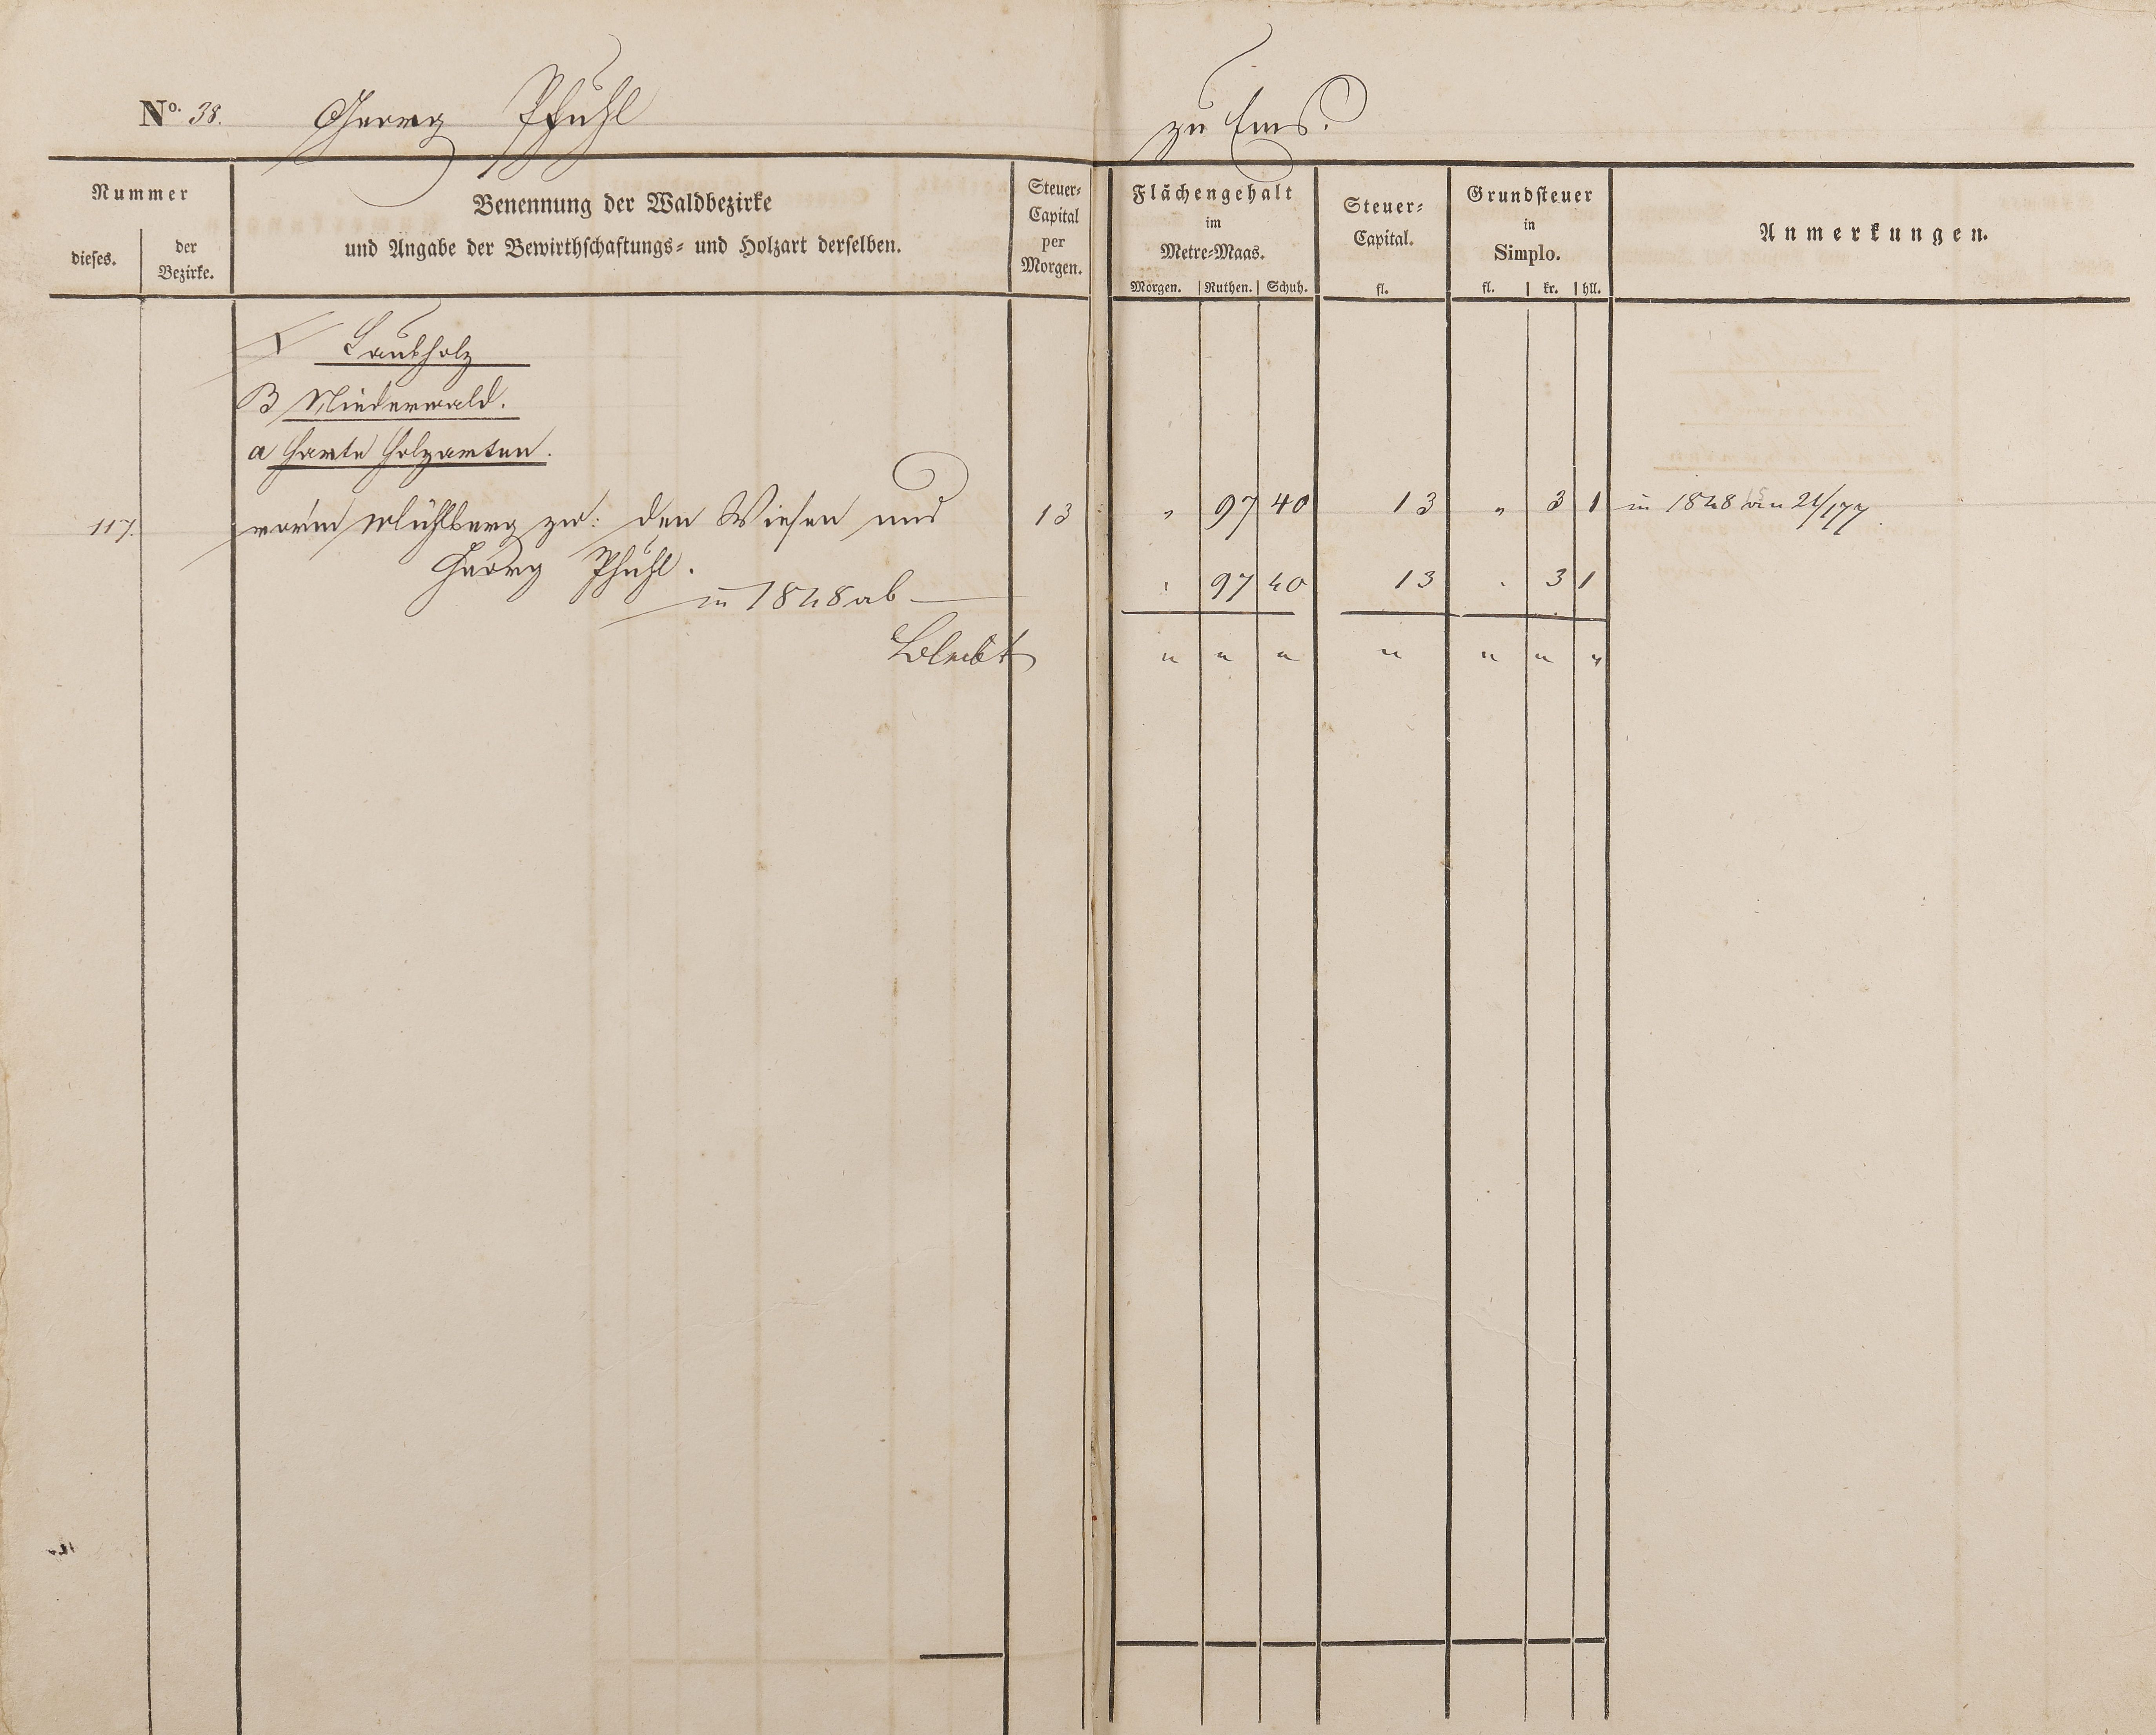 No. 38. Georg Pfuhl zu Ems.
Nummer
dieses.
der
Bezirke.
Benennung der Waldbezirke
und Angabe der Bewirthschaftungs- und Holzart derselben.
Steuer-
Capital
per
Morgen.
Flächengehalt
im
Metre-Maas.
Morgen. Ruthen. Schuh.
Steuer-
Capital.
fl.
Grundsteuer
in
Simplo.
fl. kr. hll.
Anmerkungen.
Laubholz
B Niederwald.
a harte Holzarten.
117. vor'm Mühlberg zw: den Wiesen und 13 " 97 40 13 " 3 1 in 1848 an 21/177.
Georg Pfuhl.
in 1848 ab " 97 40 13 " 3 1
Bleibt " " " " " " "